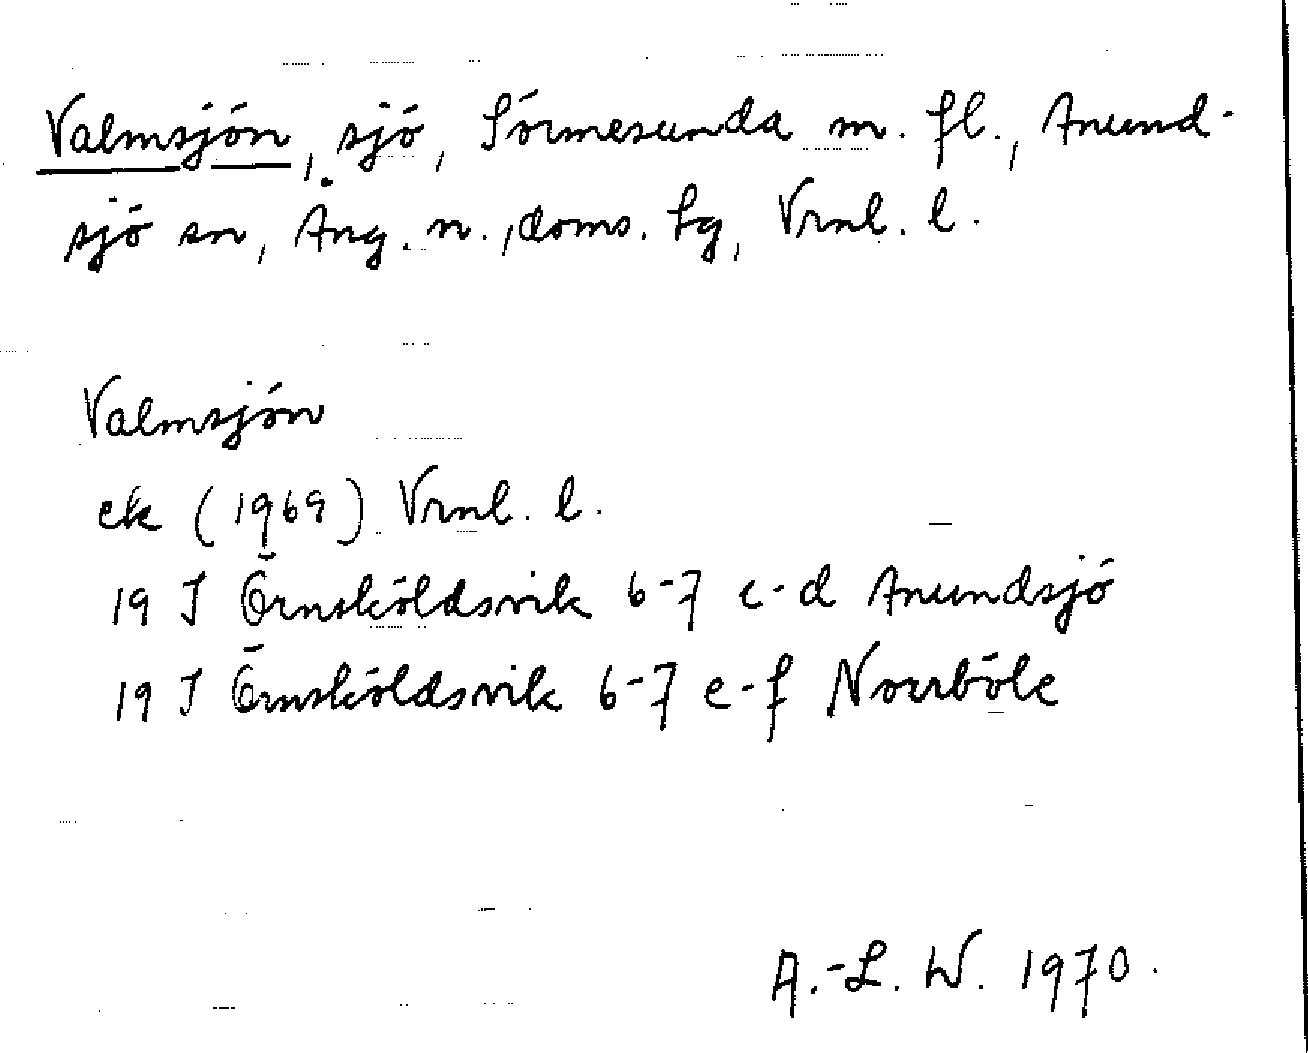 Valmsjön, sjö, Sörmesunda m. fl., Anund-
sjö sn, Ång. n., doms. lg, Vrnl. l.
Valmsjön
ek (1969) Vrnl. l.
19 J Örnsköldsvik 6-7 c-d Anundsjö
19 J Örnsköldsvik 6-7 e-f Norrböle
A.-L. W. 1970.